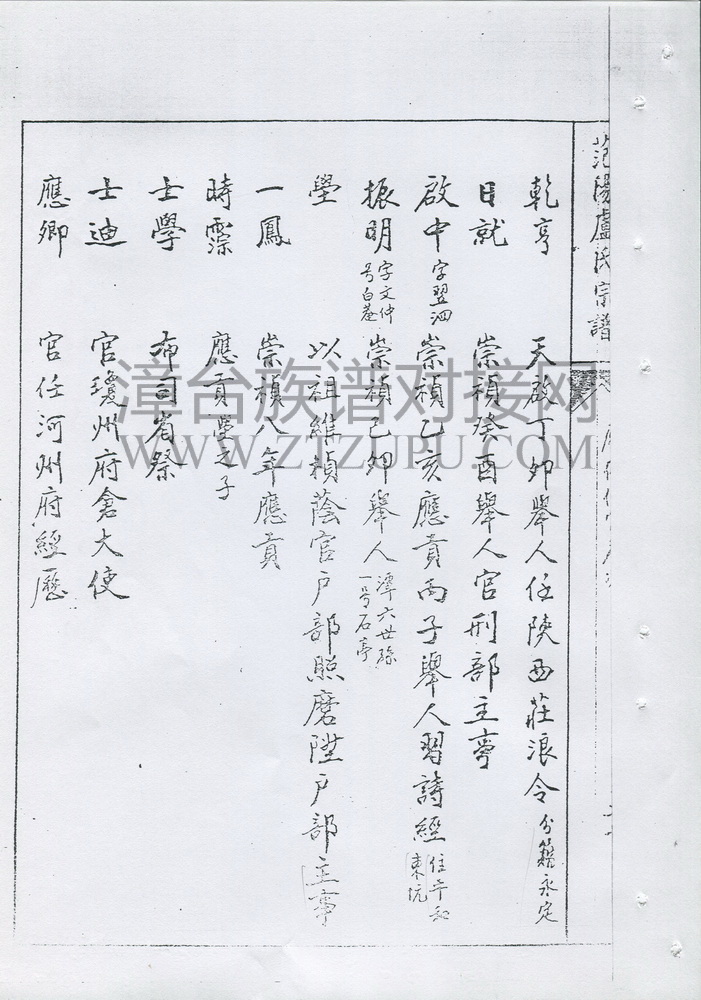 范陽盧氏宗譜
乾亨 天啟丁卯舉人任陝西莊浪令 分籍永定
日就 崇禎癸酉舉人官刑部主事
啟中 字翌泗 崇禎乙亥應貢丙子舉人習詩經 住平和東坑
振明 字文仲号白菴 崇禎己卯舉人 潭六世孫一号石亭
壆 以祖維禎蔭官戶部照磨陞戶部主事
一鳳 崇禎八年應貢
時霖 應貢壆之子
士學 布司省祭
士迪 官瓊州府倉大使
應卿 官任河州府經歷
漳台族谱对接网
WWW.ZTZUPU.COM